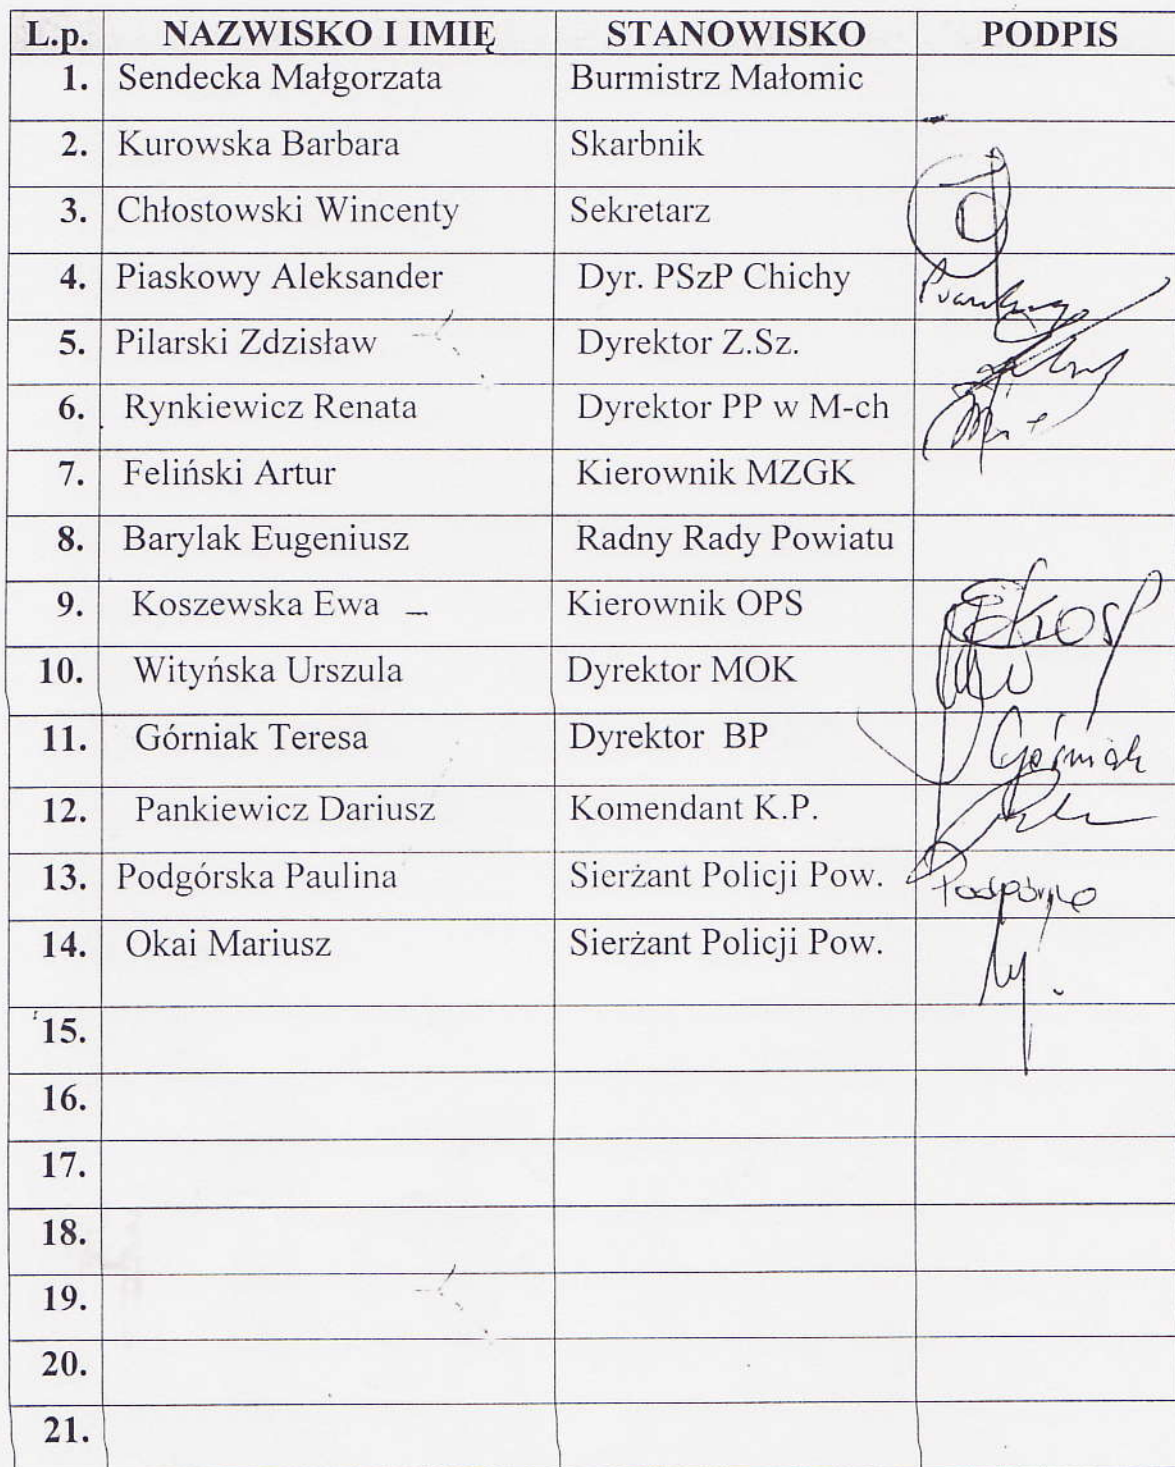 L.p. NAZWISKO I IMIĘ STANOWISKO PODPIS
1. Sendecka Małgorzata Burmistrz Małomic
2. Kurowska Barbara Skarbnik
3. Chłostowski Wincenty Sekretarz
4. Piaskowy Aleksander Dyr. PSzP Chichy
5. Pilarski Zdzisław Dyrektor Z.Sz.
6. Rynkiewicz Renata Dyrektor PP w M-ch
7. Feliński Artur Kierownik MZGK
8. Barylak Eugeniusz Radny Rady Powiatu
9. Koszewska Ewa Kierownik OPS
10. Wityńska Urszula Dyrektor MOK
11. Górniak Teresa Dyrektor BP Górniak
12. Pankiewicz Dariusz Komendant K.P.
13. Podgórska Paulina Sierżant Policji Pow.
14. Okai Mariusz Sierżant Policji Pow.
15.
16.
17.
18.
19.
20.
21.